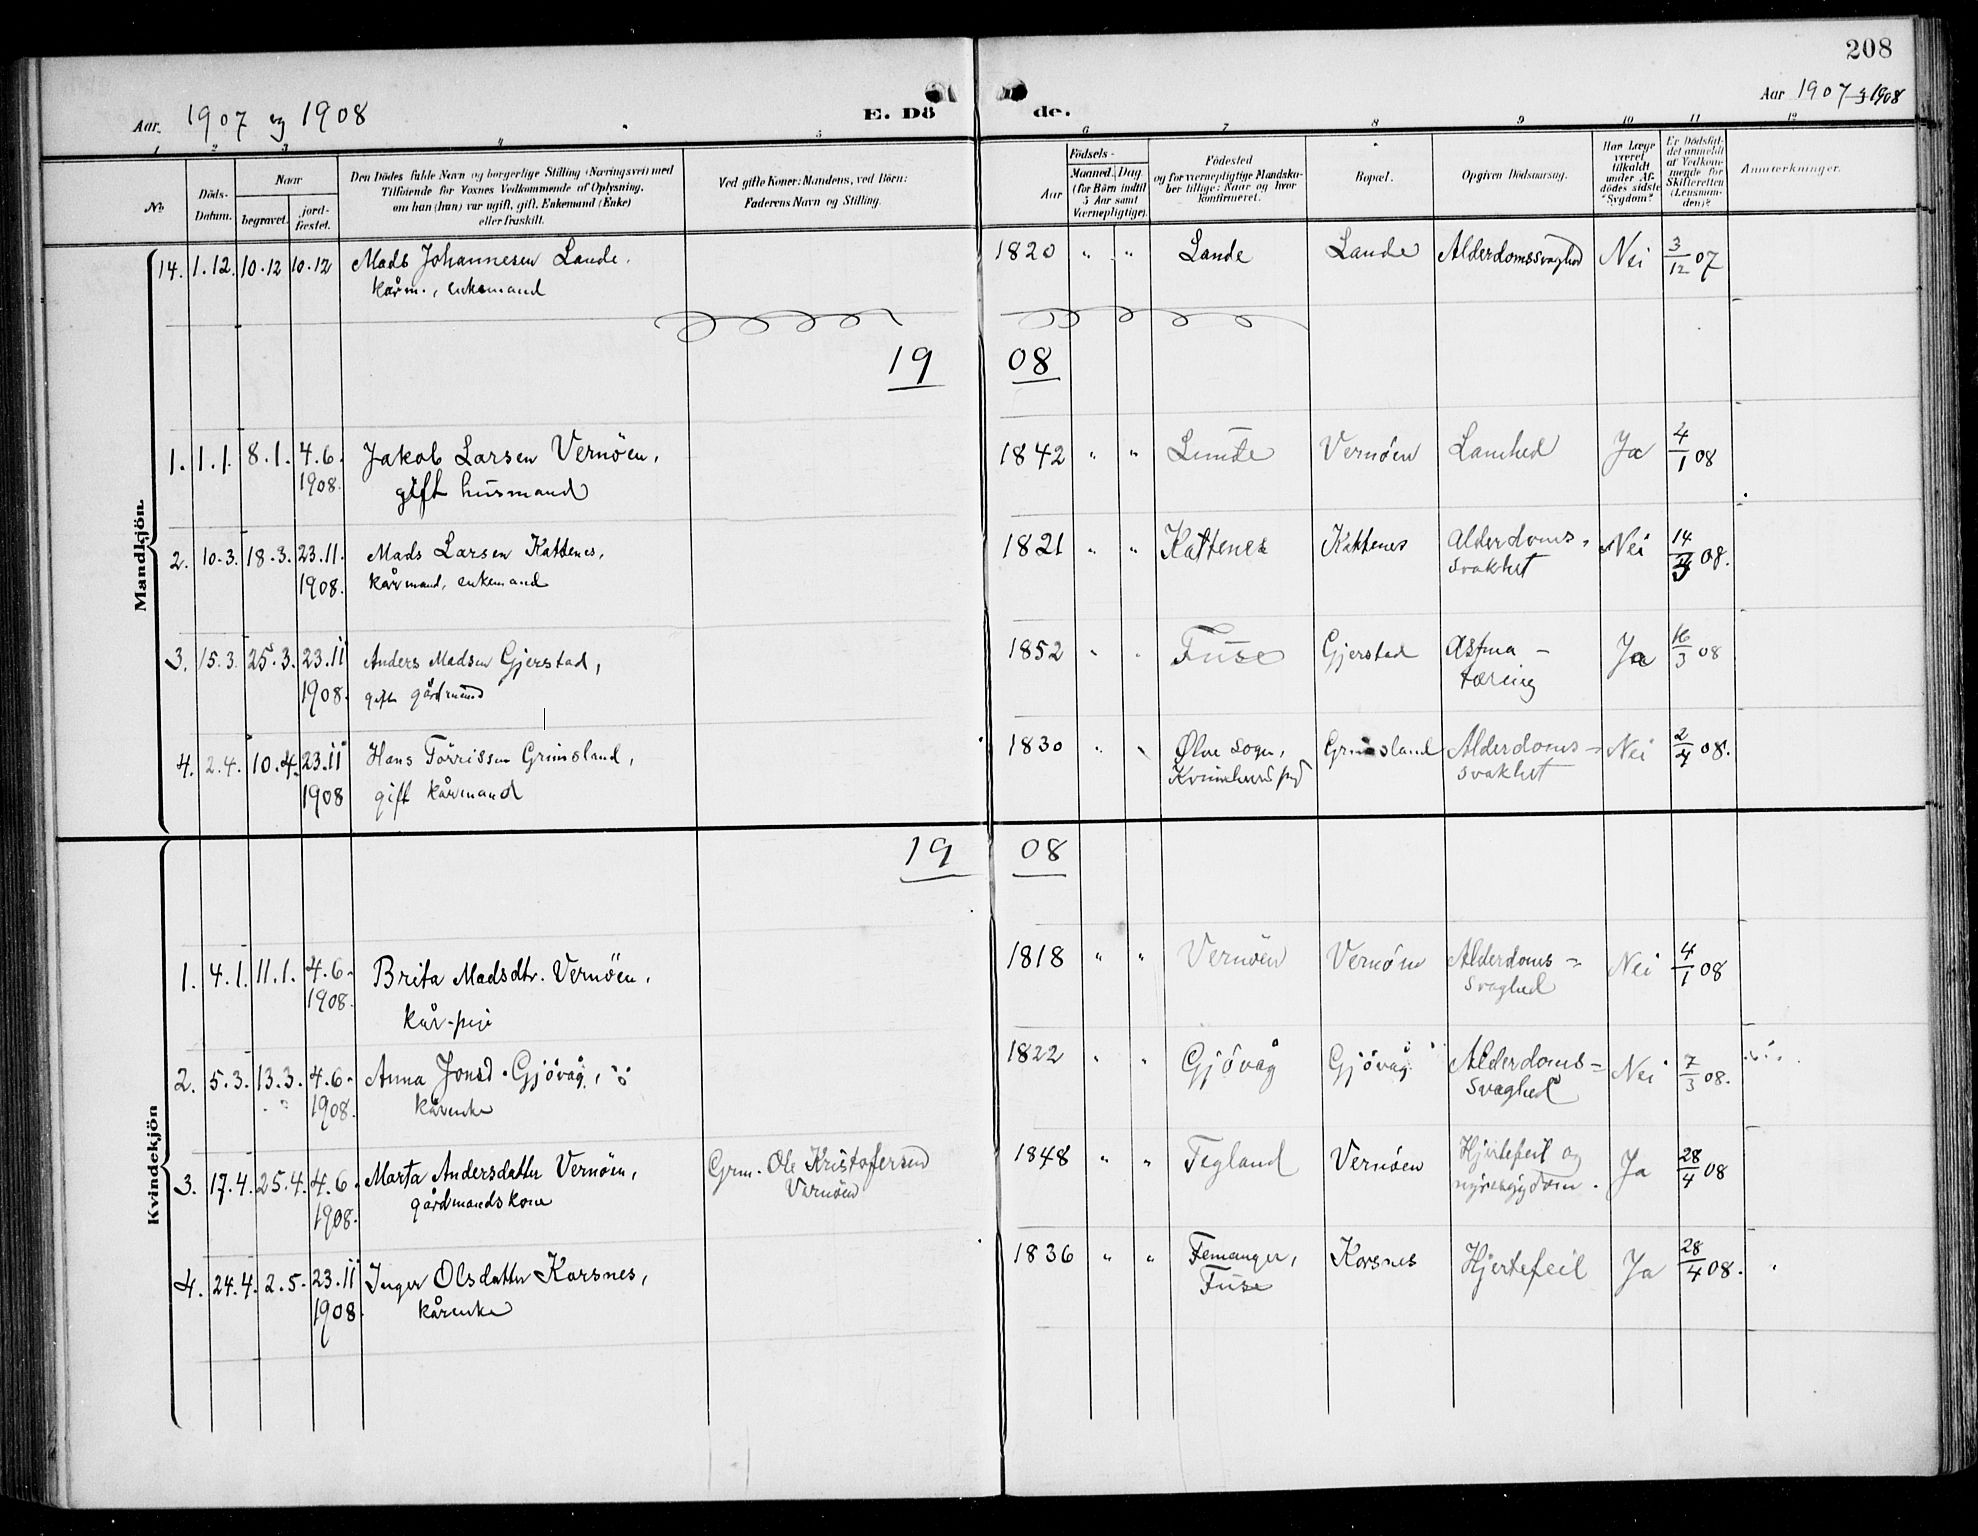 208
Aar. 1907 og 1908 E. Dö de. Aar 1907 & 1908
1 2 3 4 5 6 7 8 9 10 11 12
No. Döds-Datum. Naar begravet. jord-fæstet. Den Dödes fulde Navn og borgerlige Stilling (Næringsvei) med
Tilföiende for Voxnes Vedkommende af Oplysning,
om han (hun) var ugift, gift, Enkemand (Enke)
eller fraskilt.
Ved gifte Koner: Mandens, ved Börn:
Faderens Navn og Stilling.
Födsels-
Aar Maaned. Dag.
(for Börn indtil
5 Aar samt
Værnepligtige).
Födested
og for værnepligtige Mandska-
ber tillige: Naar og hvor
konfirmeret.
Bopæl.
Opgiven Dödsaarsag.
Har Læge
været
tilkaldt
under Af-
dödes sidste
Sygdom?
Er Dödsfal-
det anmeldt
af Vedkom-
mende for
Skifteretten
(Lensman-
den)?
Anmærkninger.
Mandkjön.
14. 1.12. 10.12 10.12 Mads Johannesen Lande. 1820 " " Lande Lande Alderdomssvaghed Nei 3/12 07
kårm., enkemand
19 08
1. 1.1. 8.1. 4.6. Jakob Larsen Vernöen, 1842 " " Vernöen Lamhed Ja 4/1 08
1908. gift husmand
2. 10.3. 18.3. 23.11. Mads Larsen Kattenes, 1821 " " Kattenes Kattenes Alderdoms-
1908. kårmand, enkemand svakhet Nei 14/3 08.
3. 15.3. 25.3. 23.11 Anders Madsen Gjerstad, 1852 " " Fuse Gjerstad Astma - Ja 16/3 08
1908. gift gårdmand tæring
4. 2.4. 10.4. 23.11 Hans Törrissen Grimsland, 1830 " " Ølve sogn, Grimsland Alderdoms- Nei 2/4 08.
1908 gift kårmand svakhet
Kvindekjön
19 08
1. 4.1. 11.1. 4.6- Brita Madsdtr. Vernöen, 1818 " " Vernöen Vernöen Alderdoms- Nei 4/1 08
1908. kår-pige svaghed
2. 5.3. 13.3. 4.6- Anna Jonsd. Gjövåg, 1822 " " Gjövåg Gjövåg Alderdoms- Nei 7/3 08.
1908. kårenke svaghed
3. 17.4. 25.4. 4.6. Marta Andersdatter Vernöen, Grm. Ole Kristofersen 1848 " " Tegland Vernöen Hjertefeil og Ja 28/4 08
1908. gårdmandskone Vernöen nyresygdom.
4. 24.4. 2.5. 23.11 Inger Olsdatter Korsnes, 1836 " " Femanger, Korsnes Hjertefeil Ja 28/4 08.
1908. kårenke Fuse